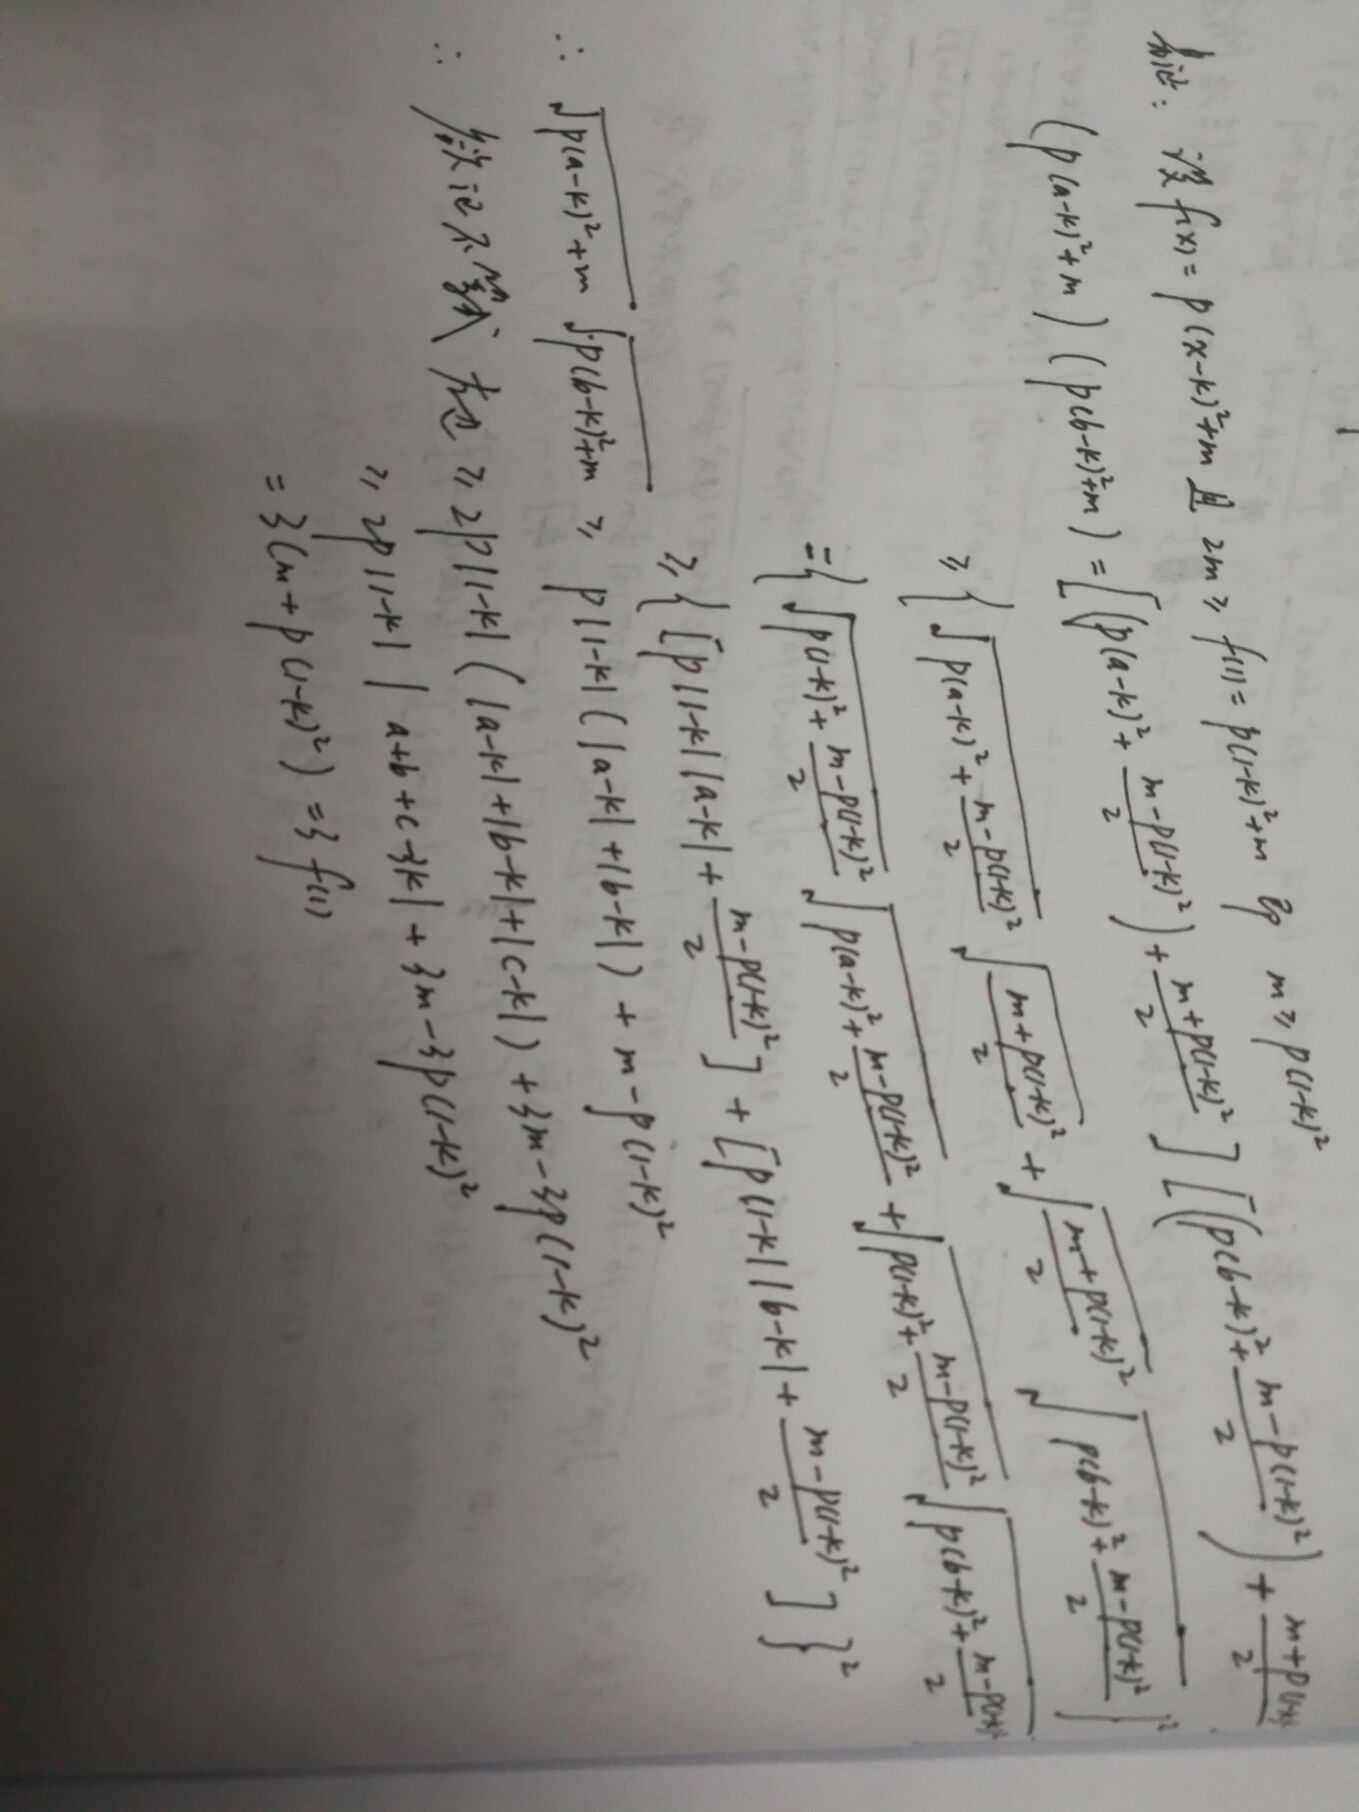 求证: 设 f(x) = p(x-k)²+m 且 2m ≥ f(1) = p(1-k)²+m 即 m ≥ p(1-k)²
(p(a-k)²+m)(p(b-k)²+m) = [(p(a-k)² + \frac{m-p(1-k)²}{2}) + \frac{m+p(1-k)²}{2}][(p(b-k)² + \frac{m-p(1-k)²}{2}) + \frac{m+p(1-k)²}{2}
≥ {√(p(a-k)² + \frac{m-p(1-k)²}{2}) √(\frac{m+p(1-k)²}{2}) + √(\frac{m+p(1-k)²}{2}) √(p(b-k)² + \frac{m-p(1-k)²}{2})}²
= {√(p(1-k)² + \frac{m-p(1-k)²}{2}) √(p(a-k)² + \frac{m-p(1-k)²}{2}) + √(p(1-k)² + \frac{m-p(1-k)²}{2}) √(p(b-k)² + \frac{m-p(1-k)²}{2})
≥ {[p|1-k||a-k| + \frac{m-p(1-k)²}{2}] + [p|1-k||b-k| + \frac{m-p(1-k)²}{2}]}²
∴ √(p(a-k)²+m) √(p(b-k)²+m) ≥ p|1-k|(|a-k|+|b-k|) + m-p(1-k)²
∴ 欲证不等式 左 ≥ 2p|1-k|(|a-k|+|b-k|+|c-k|) + 3m-3p(1-k)²
≥ 2p|1-k| |a+b+c-3k| + 3m-3p(1-k)²
= 3(m+p(1-k)²) = 3f(1)